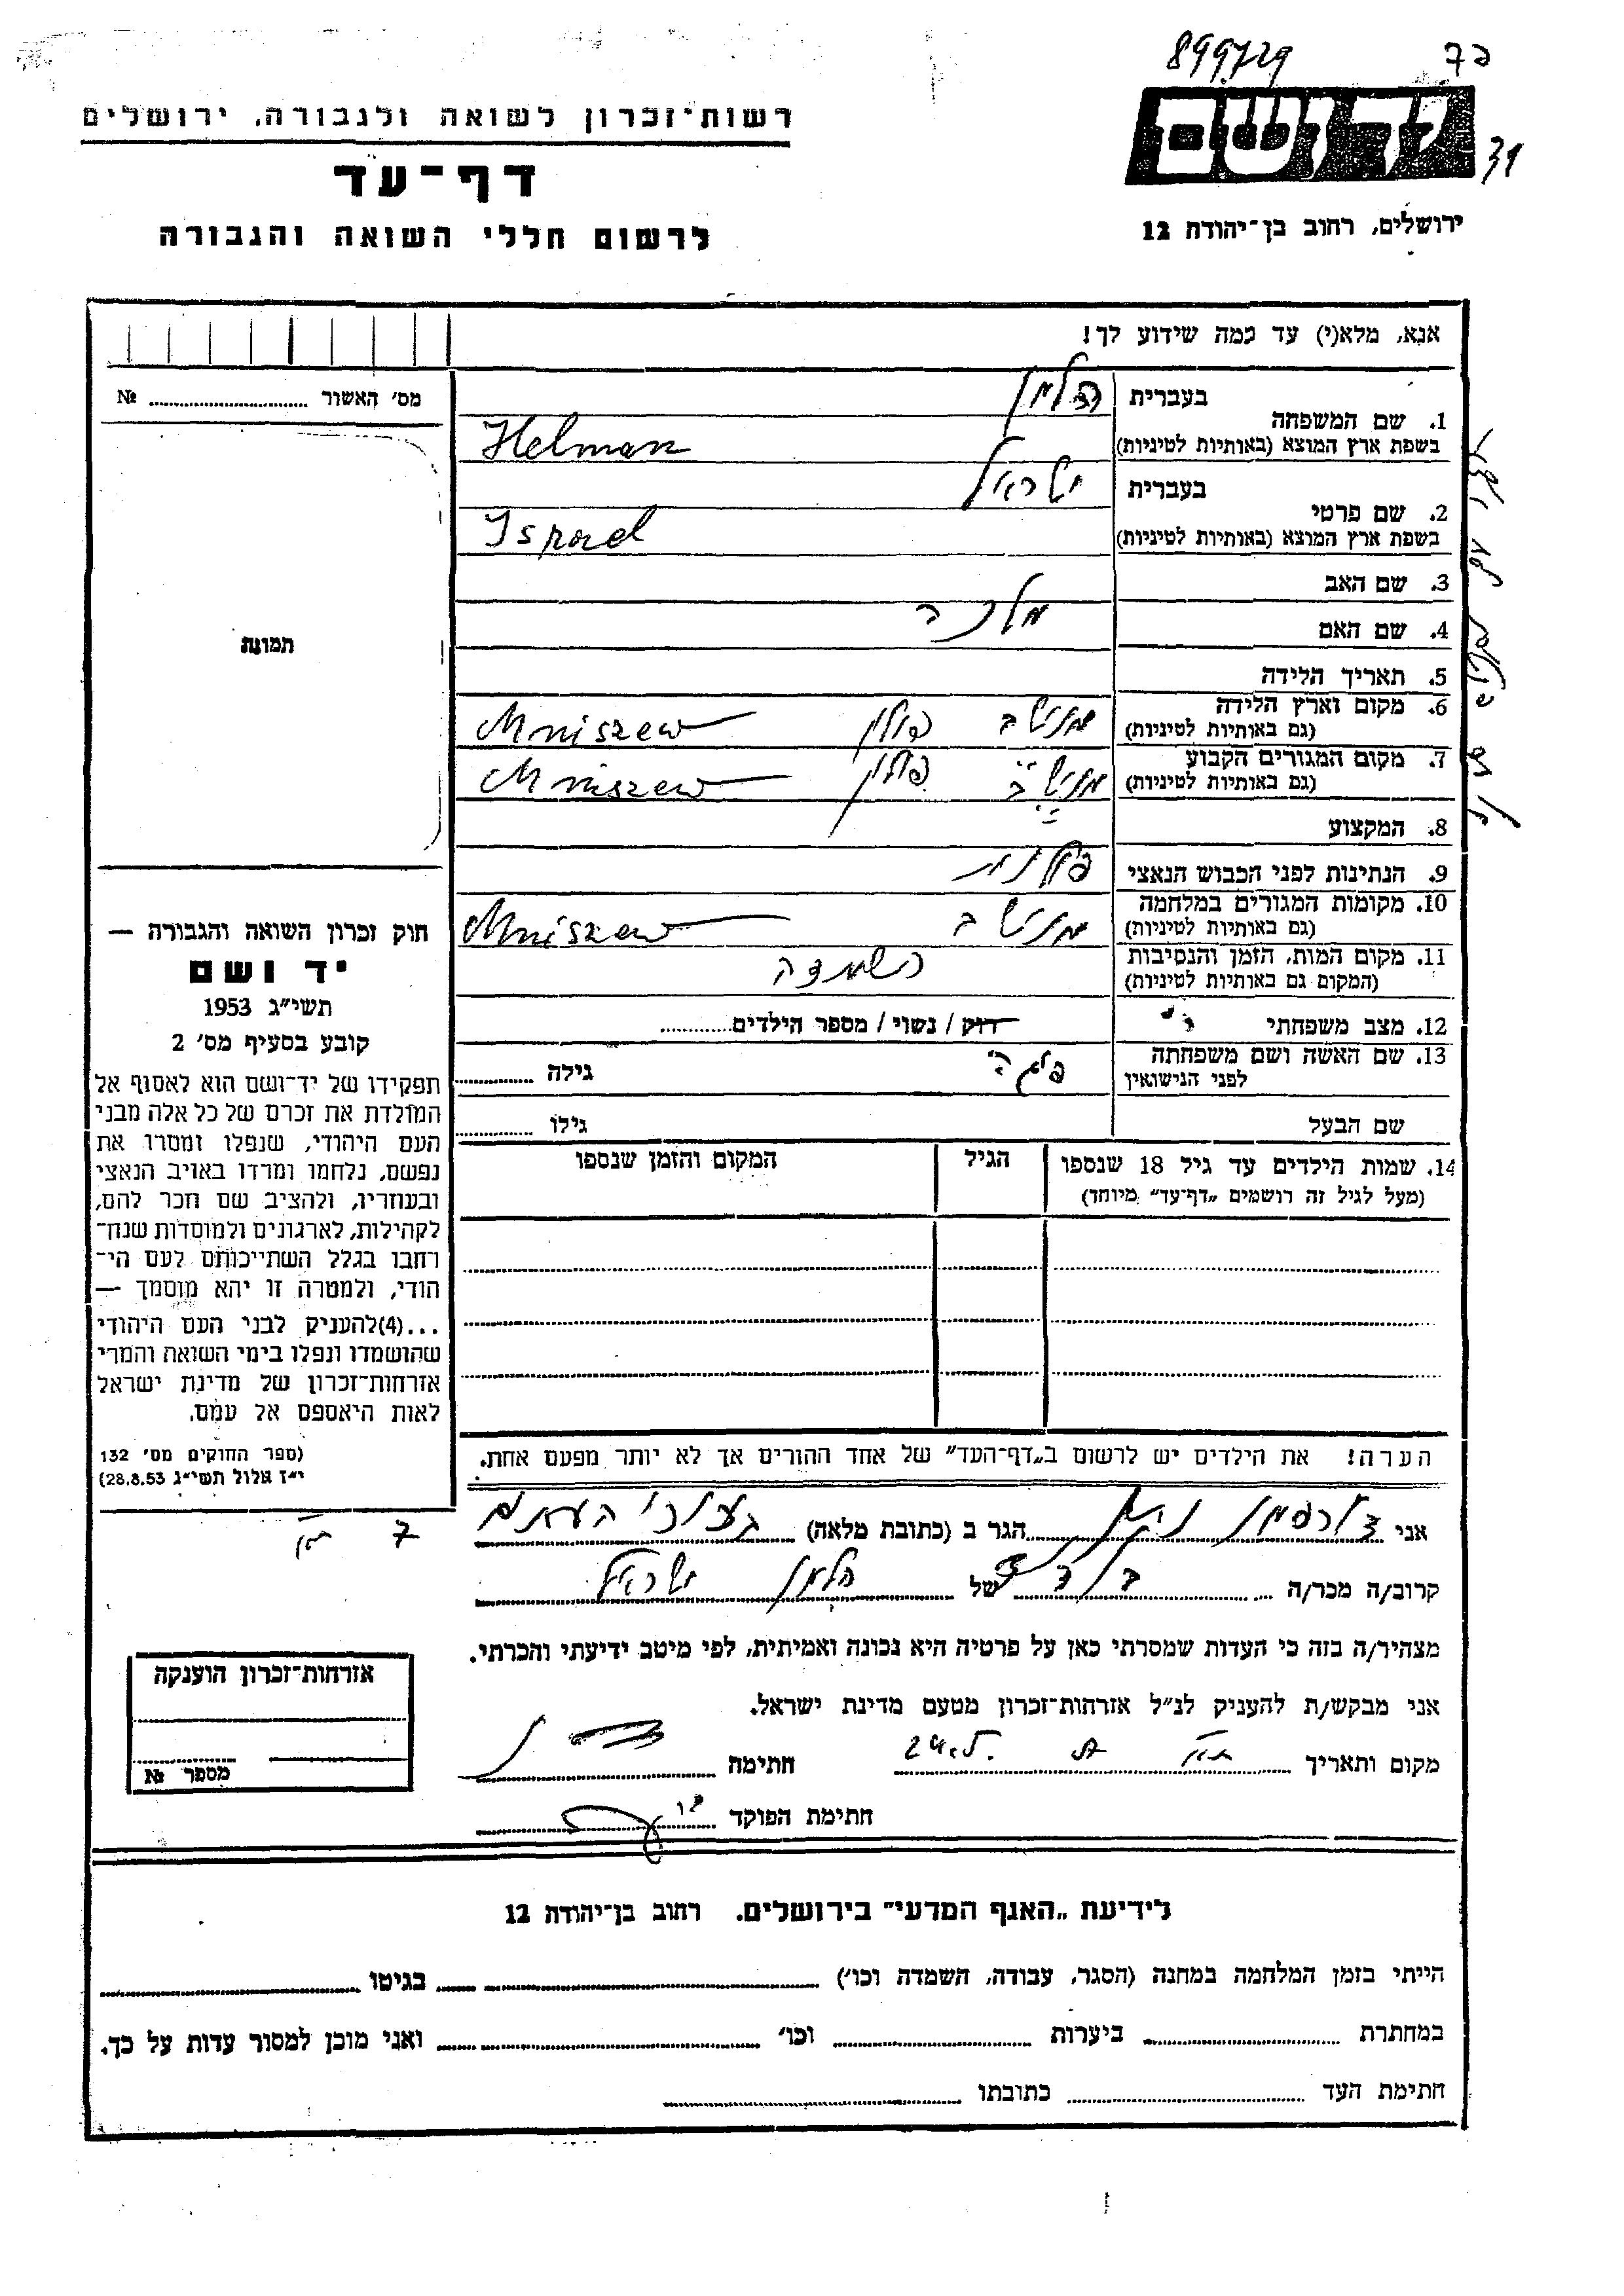 899729
יד ושם
31
ירושלים, רחוב בן־יהודה 12
רשות־זכרון לשואה ולגבורה, ירושלים
דף־עד
לרשום חללי השואה והגבורה
אנא, מלא(י) עד כמה שידוע לך!
מס' האשור ........ №
תמונה
1. שם המשפחה
בעברית
הלמן
בשפת ארץ המוצא (באותיות לטיניות)
Helman
2. שם פרטי
בעברית
ישראל
בשפת ארץ המוצא (באותיות לטיניות)
Israel
3. שם האב
4. שם האם
מלכה
5. תאריך הלידה
6. מקום וארץ הלידה
(גם באותיות לטיניות)
מנישב פולין Mniszew
7. מקום המגורים הקבוע
(גם באותיות לטיניות)
מנישב פולין Mniszew
8. המקצוע
9. הנתינות לפני הכבוש הנאצי
פולנית
10. מקומות המגורים במלחמה
(גם באותיות לטיניות)
מנישב Mniszew
11. מקום המות, הזמן והנסיבות
(המקום גם באותיות לטיניות)
השמדה
12. מצב משפחתי
רווק / נשוי / מספר הילדים........
13. שם האשה ושם משפחתה
לפני הנישואין
פיגה
גילה ........
שם הבעל
גילו ........
14. שמות הילדים עד גיל 18 שנספו
(מעל לגיל זה רושמים „דף־עד" מיוחד)
הגיל
המקום והזמן שנספו
הערה! את הילדים יש לרשום ב„דף־העד" של אחד ההורים אך לא יותר מפעם אחת.
חוק זכרון השואה והגבורה —
יד ושם
תשי"ג 1953
קובע בסעיף מס' 2
תפקידו של יד־ושם הוא לאסוף אל
המולדת את זכרם של כל אלה מבני
העם היהודי, שנפלו ומסרו את
נפשם, נלחמו ומרדו באויב הנאצי
ובעוזריו, ולהציב שם וזכר להם,
לקהילות, לארגונים ולמוסדות שנח־
רבו בגלל השתייכותם לעם הי־
הודי, ולמטרה זו יהא מוסמך —
...(4)להעניק לבני העם היהודי
שהושמדו ונפלו בימי השואה והמרי
אזרחות־זכרון של מדינת ישראל
לאות היאספם אל עמם.
(ספר החוקים מס' 132
י"ז אלול תשי"ג 28.8.53)
אני הגר ב (כתובת מלאה)
קרוב/ה מכר/ה של הלמן ישראל
מצהיר/ה בזה כי העדות שמסרתי כאן על פרטיה היא נכונה ואמיתית, לפי מיטב ידיעתי והכרתי.
אני מבקש/ת להעניק לנ"ל אזרחות־זכרון מטעם מדינת ישראל.
מקום ותאריך חתימה
חתימת הפוקד
אזרחות־זכרון הוענקה
מספר №
לידיעת „האגף המדעי" בירושלים, רחוב בן־יהודה 12
הייתי בזמן המלחמה במחנה (הסגר, עבודה, השמדה וכו') ........ בגיטו ........
במחתרת ........ ביערות ........ וכו' ........ ואני מוכן למסור עדות על כך.
חתימת העד ........ כתובתו ........